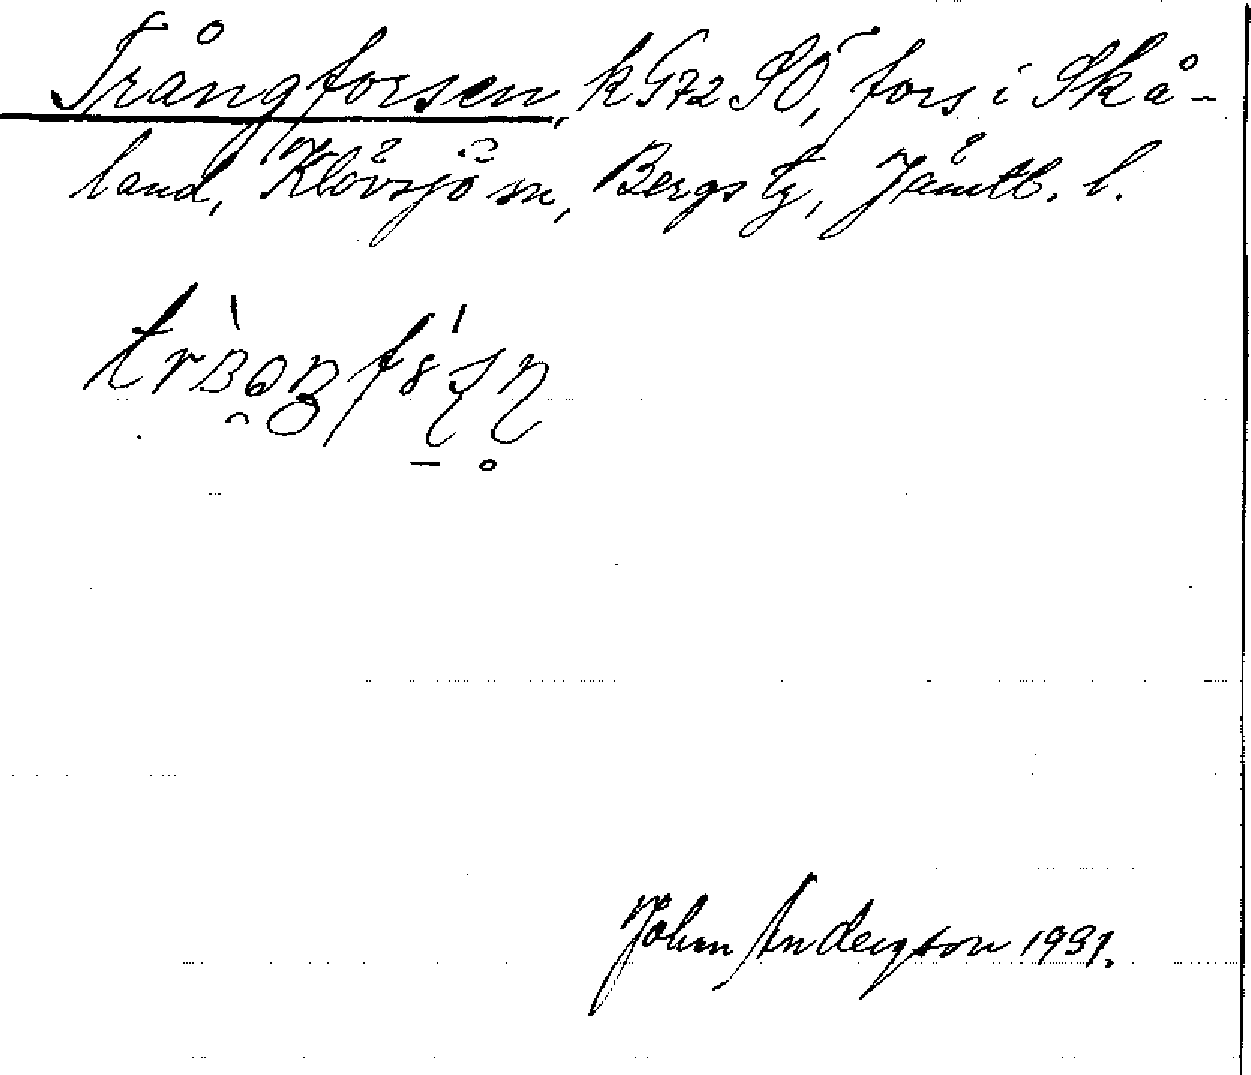 Trångforsen, k G72 SÖ, fors i Skå-
land, Klövsjö sn, Bergs tg, Jämtl. l.
John Anderson 1931.